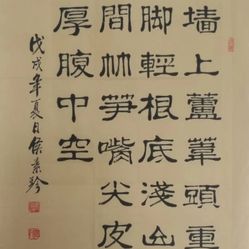 墙上蘆葦頭重
脚輕根底淺山
間竹笋嘴尖皮
厚腹中空
戊戌年夏日侯素珍